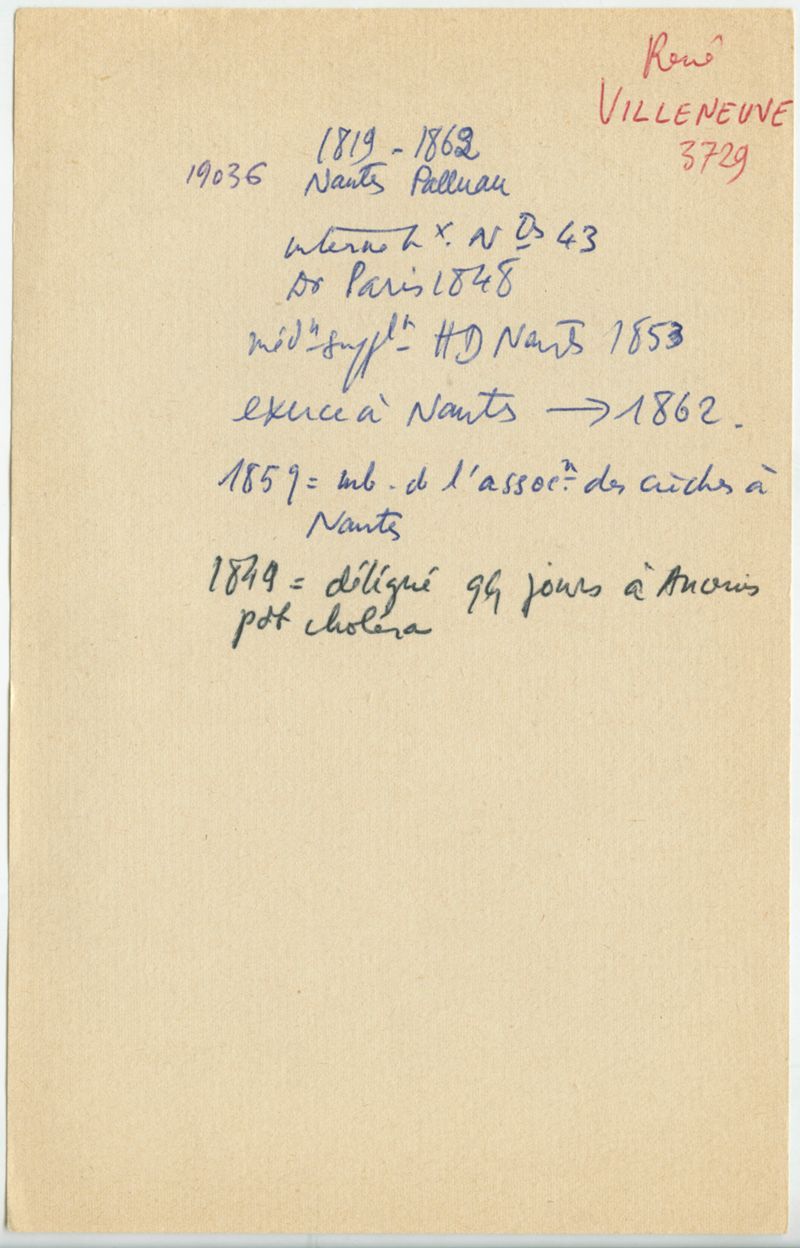 René
VILLENEUVE
3729
1819 - 1862
19036 Nantes Palluau
interne hx. Ntes 43
Dr Paris 1848
médn suppln HD Nantes 1853
exerce à Nantes → 1862.
1859 = mb. d l'assocn des crèches à
Nantes
1849 = délégué 94 jours à Ancenis
pdt choléra